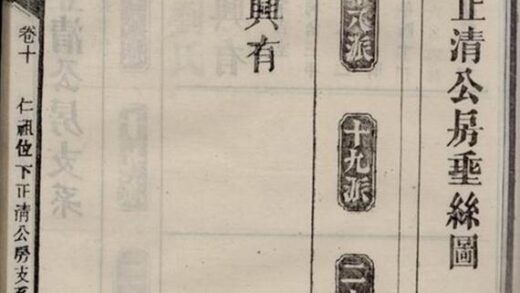 正清公房埀絲圖
十九派
興有
卷十
仁祖位下正清公房支系